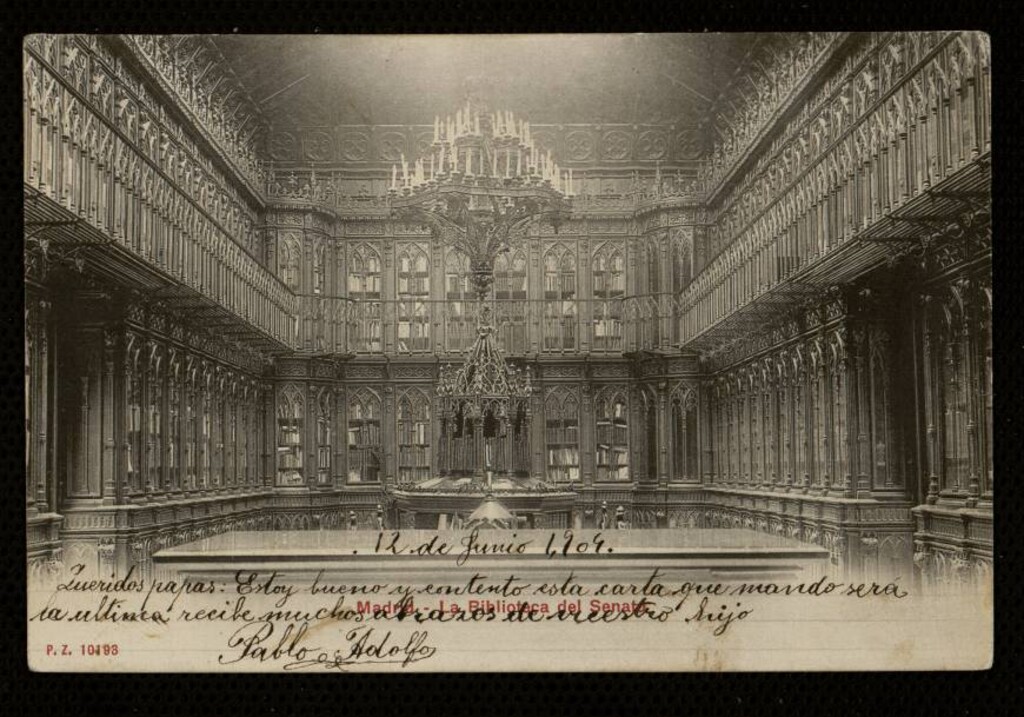 . 12 de Junio 1,904.
Queridos papas: Estoy bueno y contento esta carta que mando será
la ultima recibe muchos abrazos de vuestro hijo
Madrid - La Biblioteca del Senado
Pablo Adolfo
P. Z. 10193